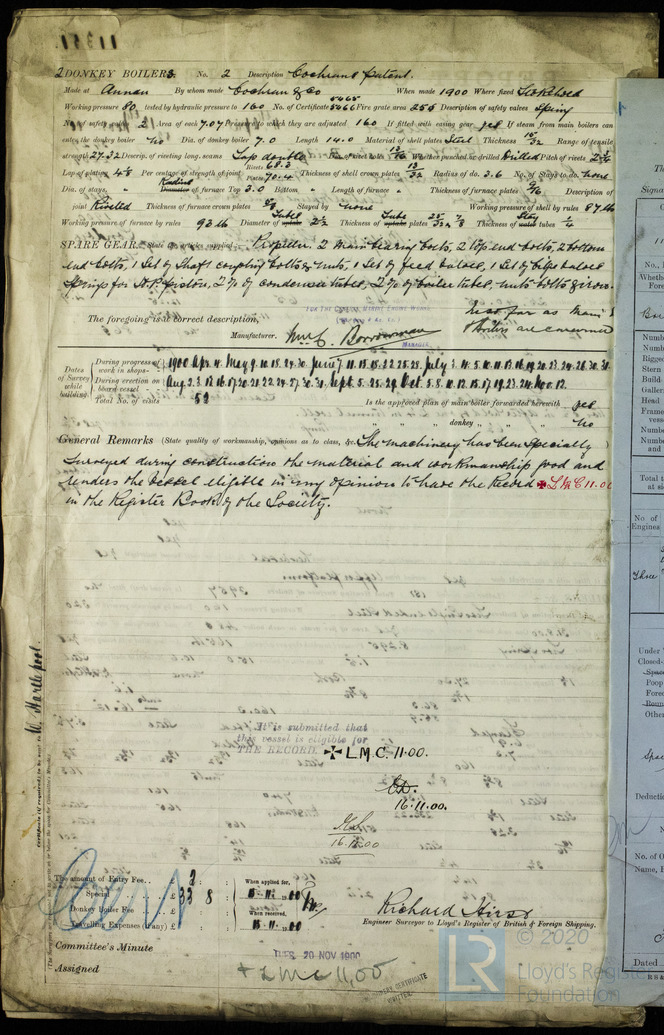 11351
2 DONKEY BOILERS. No. 2 Description Cochrans patent.
Made at Annan By whom made Cochran & Co When made 1900 Where fixed Stokehold
Working pressure 80 tested by hydraulic pressure to 160 No. of Certificate 5465 5466 Fire grate area 25.5 Description of safety valves Spring
No. of safety valves 2 Area of each 7.07 Pressure to which they are adjusted 160 If fitted with easing gear yes If steam from main boilers can
enter the donkey boiler no Dia. of donkey boiler 7.0 Length 14.0 Material of shell plates Steel Thickness Range of tensile
strength 27.32 Descrip. of riveting long. seams Lap double Dia. of rivet holes 13/16 Whether punched or drilled Drilled Pitch of rivets
Lap of plating 4 1/8 Per centage of strength of joint Rivets 68.3 Plates 70.4 Thickness of shell crown plates 13/32 Radius of do. 3.6 No. of Stays to do. none
Dia. of stays, " Radius of furnace Top 3.0 Bottom " Length of furnace " Thickness of furnace plates Description of
joint Riveted Thickness of furnace crown plates Stayed by none Working pressure of shell by rules 87 lb
Working pressure of furnace by rules 93 lb Diameter of Tubes 2 1/2 Thickness of Tube plates Thickness of Stay tubes 1/4
SPARE GEAR. State the articles supplied:— Propeller. 2 main bearing bolts, 2 top end bolts, 2 bottom
end bolts, 1 Set of Shaft coupling bolts & nuts, 1 Set of feed valves, 1 Set of bilge valves
Springs for H.P. piston, 2% of condenser tubes, 2% of boiler tubes, nuts bolts & iron.
The foregoing is a correct description,
FOR THE CENTRAL MARINE ENGINE WORKS
so far as Main
Boilers are concerned
Manufacturer.
MANAGER
Dates of Survey while building
During progress of work in shops- 1900 Apr. 4. May 9. 10. 18. 24. 30. June 7. 11. 15. 18. 22. 25. 28. July 3. 4. 5. 10. 11. 13. 16. 19. 20. 23. 24. 26. 30. 31.
During erection on board vessel Aug. 2. 3. 13. 16. 17. 20. 21. 22. 24. 27. 30. 31. Sept. 5. 25. 29. Oct. 5. 8. 10. 12. 15. 17. 19. 23. 24. Nov. 12.
Total No. of visits 52 Is the approved plan of main boiler forwarded herewith yes
" " " donkey " " " no
General Remarks (State quality of workmanship, opinions as to class, &c. The machinery has been specially
surveyed during construction the material and workmanship good and
renders the vessel eligible in my opinion to have the Record ✠ L.M.C 11.00
in the Register Book of the Society.
W. Hartlepool.
It is submitted that
this vessel is eligible for
THE RECORD. ✠ L.M.C. 11.00.
16.11.00.
16.11.00
The amount of Entry Fee. . £ 2 :
Special . . £ 33 : 8
Donkey Boiler Fee . . £
Travelling Expenses (if any) £
When applied for,
15.11.1900
When received,
15.11.1900
Richard Hirst
Engineer Surveyor to Lloyd's Register of British & Foreign Shipping.
Committee's Minute
TUES. 20 NOV 1900
Assigned
+ LMC 11,00
MACHINERY CERTIFICATE
WRITTEN
© 2020
Lloyd's Register
Foundation
LR